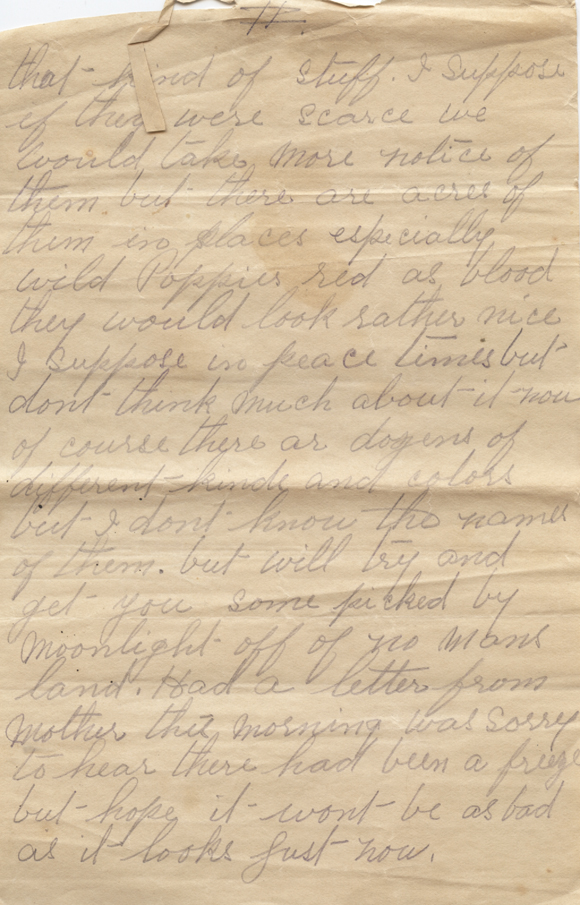 4.
that kind of stuff. I suppose
if they were scarce we
would take more notice of
them but there are acres of
them in places especially
wild Poppies red as blood
they would look rather nice
I suppose in peace times but
dont think much about it now
of course there ar dozens of
different kinds and colors
but I dont know the names
of them. but will try and
get you some picked by
moonlight off of no mans
land. Had a letter from
Mother this morning was sorry
to hear there had been a freeze
but hope it wont be as bad
as it looks just now.